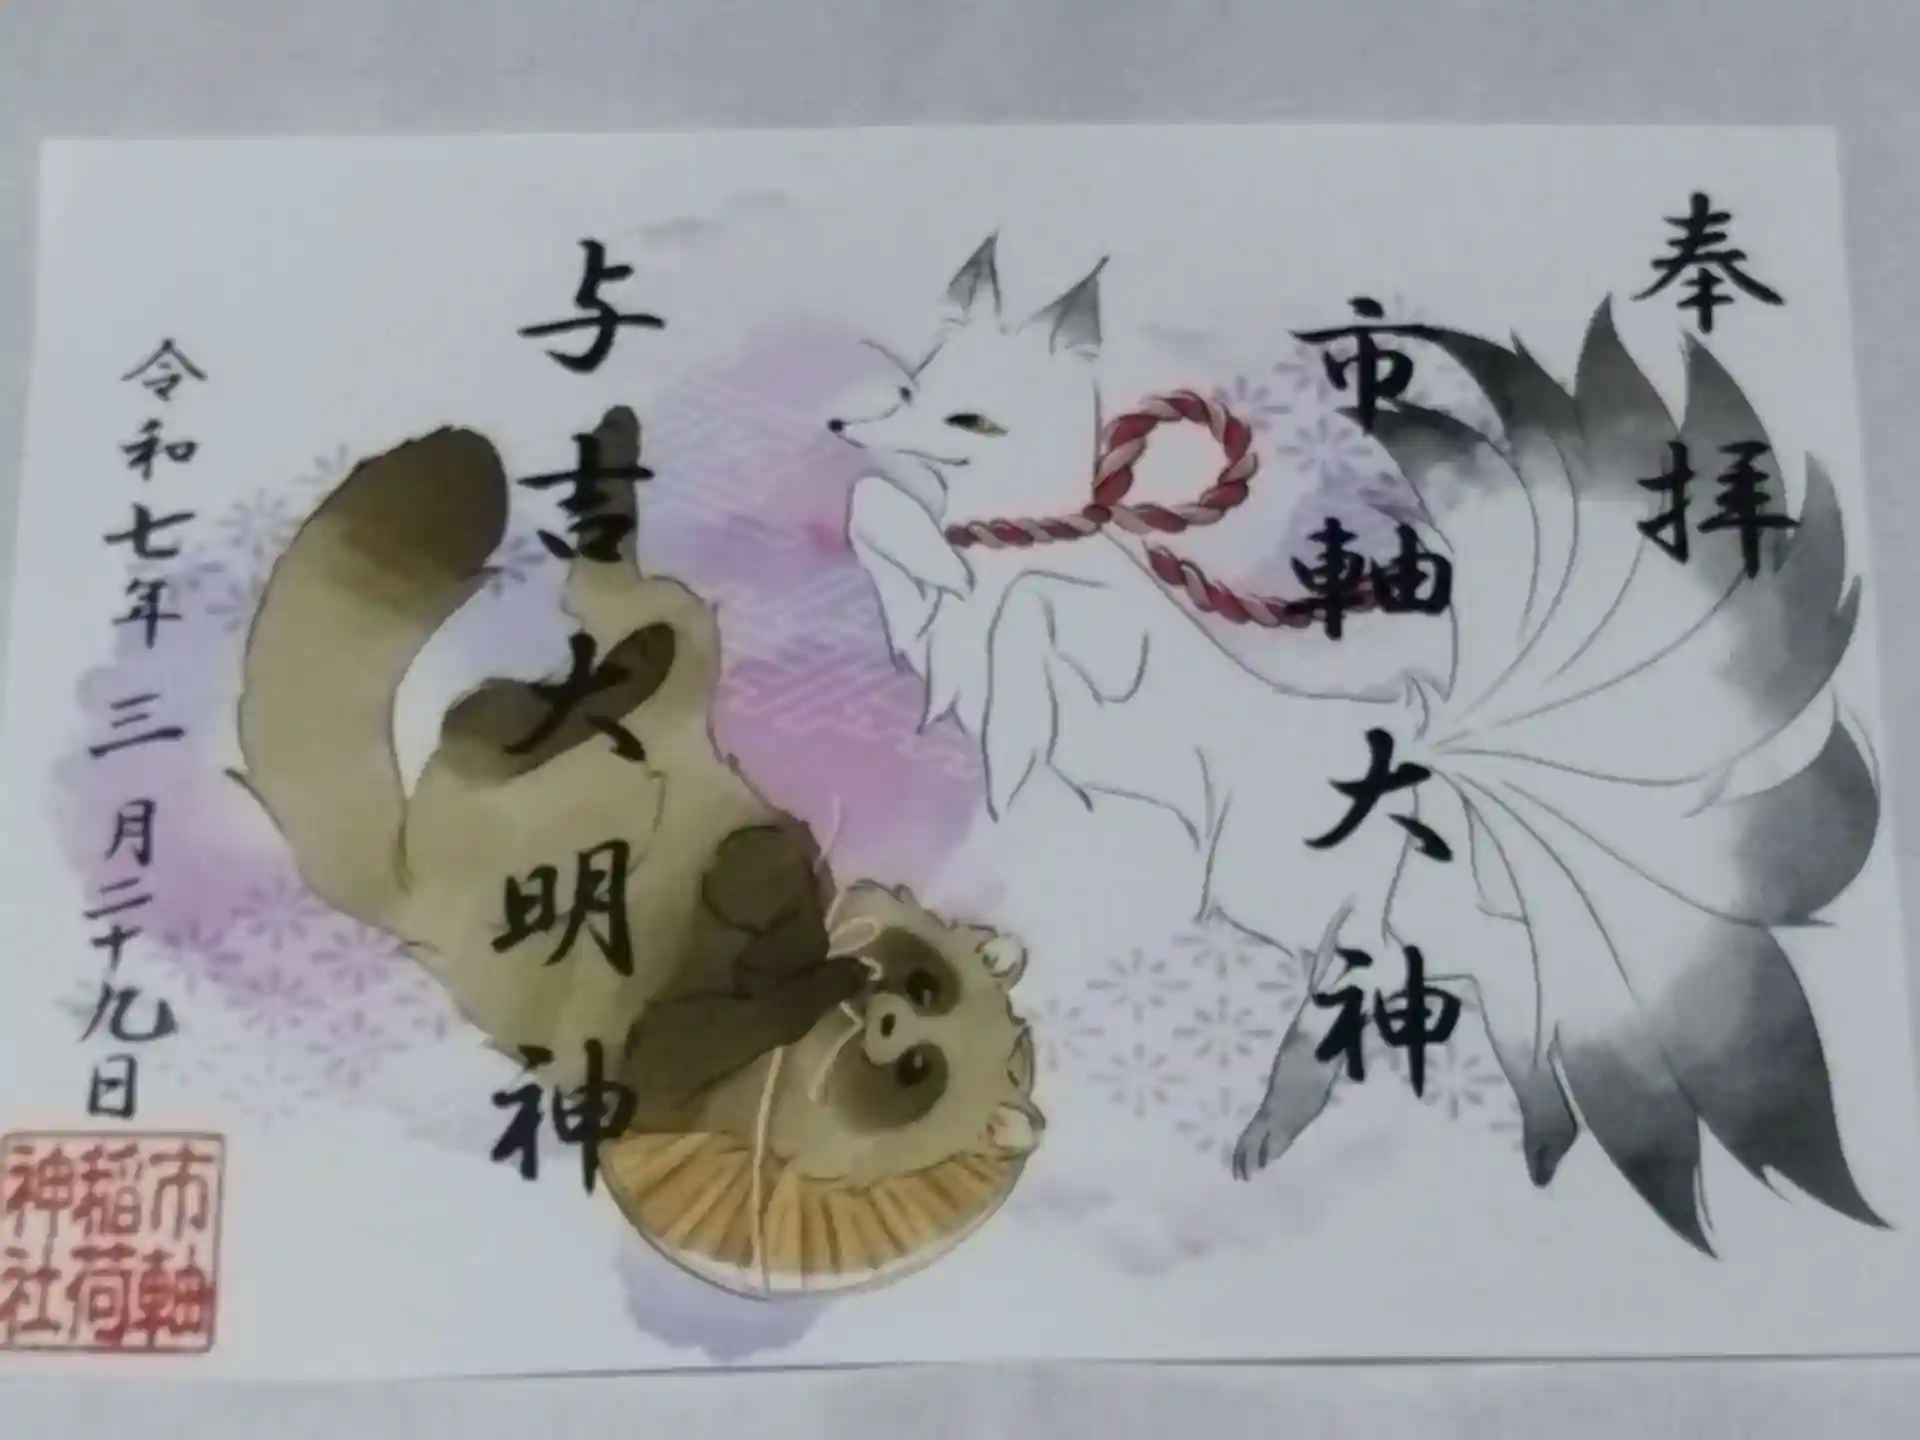 奉拝
市軸大神
与吉大明神
令和七年三月二十九日
市軸
稲荷
神社